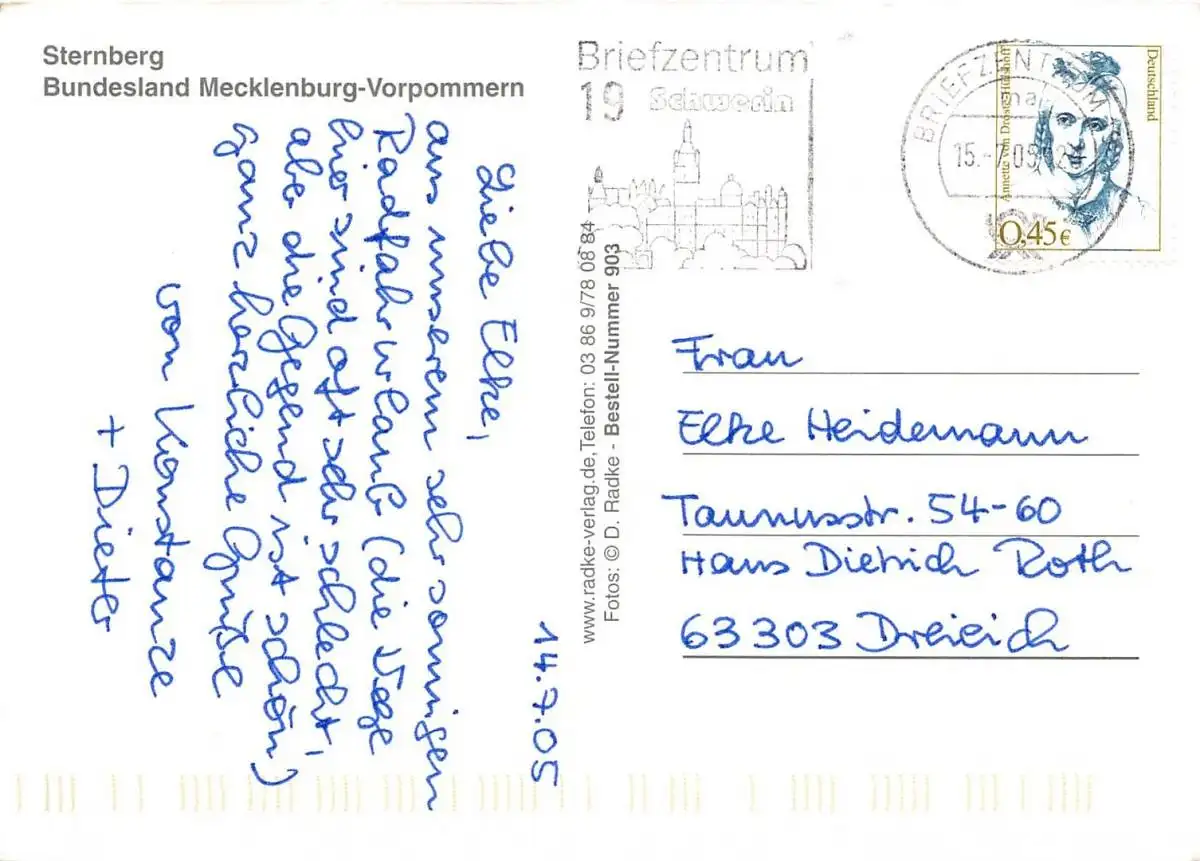 Sternberg
Bundesland Mecklenburg-Vorpommern
14.7.05
Liebe Elke,
aus unserem sehr sonnigen
Radfahrurlaub (die Wege
hier sind oft sehr schlecht,
aber die Gegend ist schön)
ganz herzliche Grüße
von Konstanze
+ Dieter
www.radke-verlag.de, Telefon: 03 86 9/78 08 84
Fotos: © D. Radke - Bestell-Nummer 903
Briefzentrum
19 Schwerin
BRIEFZENTRUM
ma
15.-7.05
Deutschland
Annette von Droste-Hülshoff
0,45€
Frau
Elke Heidemann
Taunusstr. 54-60
Hans Dietrich Roth
63303 Dreieich